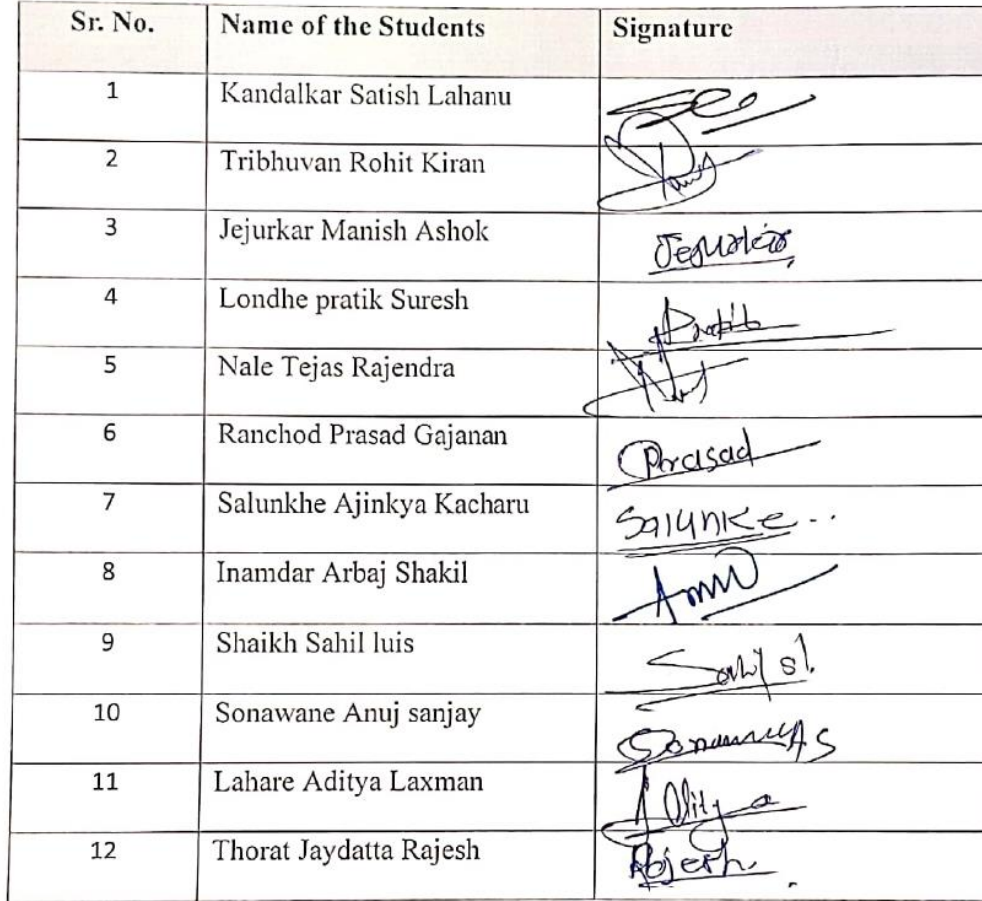 Sr. No. Name of the Students Signature
1 Kandalkar Satish Lahanu
2 Tribhuvan Rohit Kiran
3 Jejurkar Manish Ashok Jejurkar
4 Londhe pratik Suresh Pratik
5 Nale Tejas Rajendra
6 Ranchod Prasad Gajanan Prasad
7 Salunkhe Ajinkya Kacharu Salunke..
8 Inamdar Arbaj Shakil
9 Shaikh Sahil luis
10 Sonawane Anuj sanjay
11 Lahare Aditya Laxman Aditya
12 Thorat Jaydatta Rajesh Rajesh.